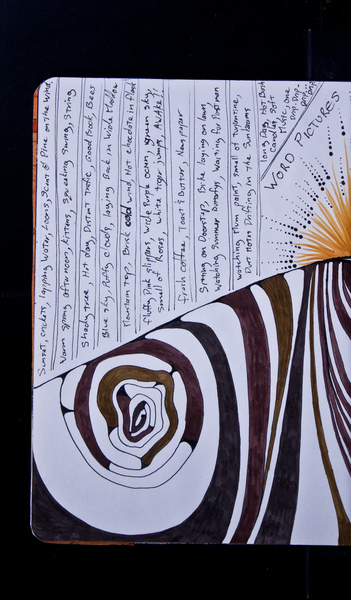 WORD PICTURES
Sunset, crickets, lapping Water, Loons, Scent of Pine on the Wind.
Warm Spring afternoon, Kittens, Squeaking Swing, String
Shady tree, Hot day, Distant Traffic, Good Book, Bees
Blue sky, Puffy clouds, laying Back in Meadow
Mountain Top, Brisk cold wind, Hot chocolate in flask
fluffy Pink slippers, Wide Purple ocean, green sky,
Smell of Roses, White tiger jumps, AWAKE!!
fresh coffee, Toast & Butter, Newspaper
Sitting on Doorstep, Bike laying on lawn,
Watching Summer Butterflys, Waiting for Postman
Watching Mum paint, smell of Turpentine,
Dust Motes Drifting, in the Sunbeams
long Day, Hot Bath
Candles, Soft
Music, one